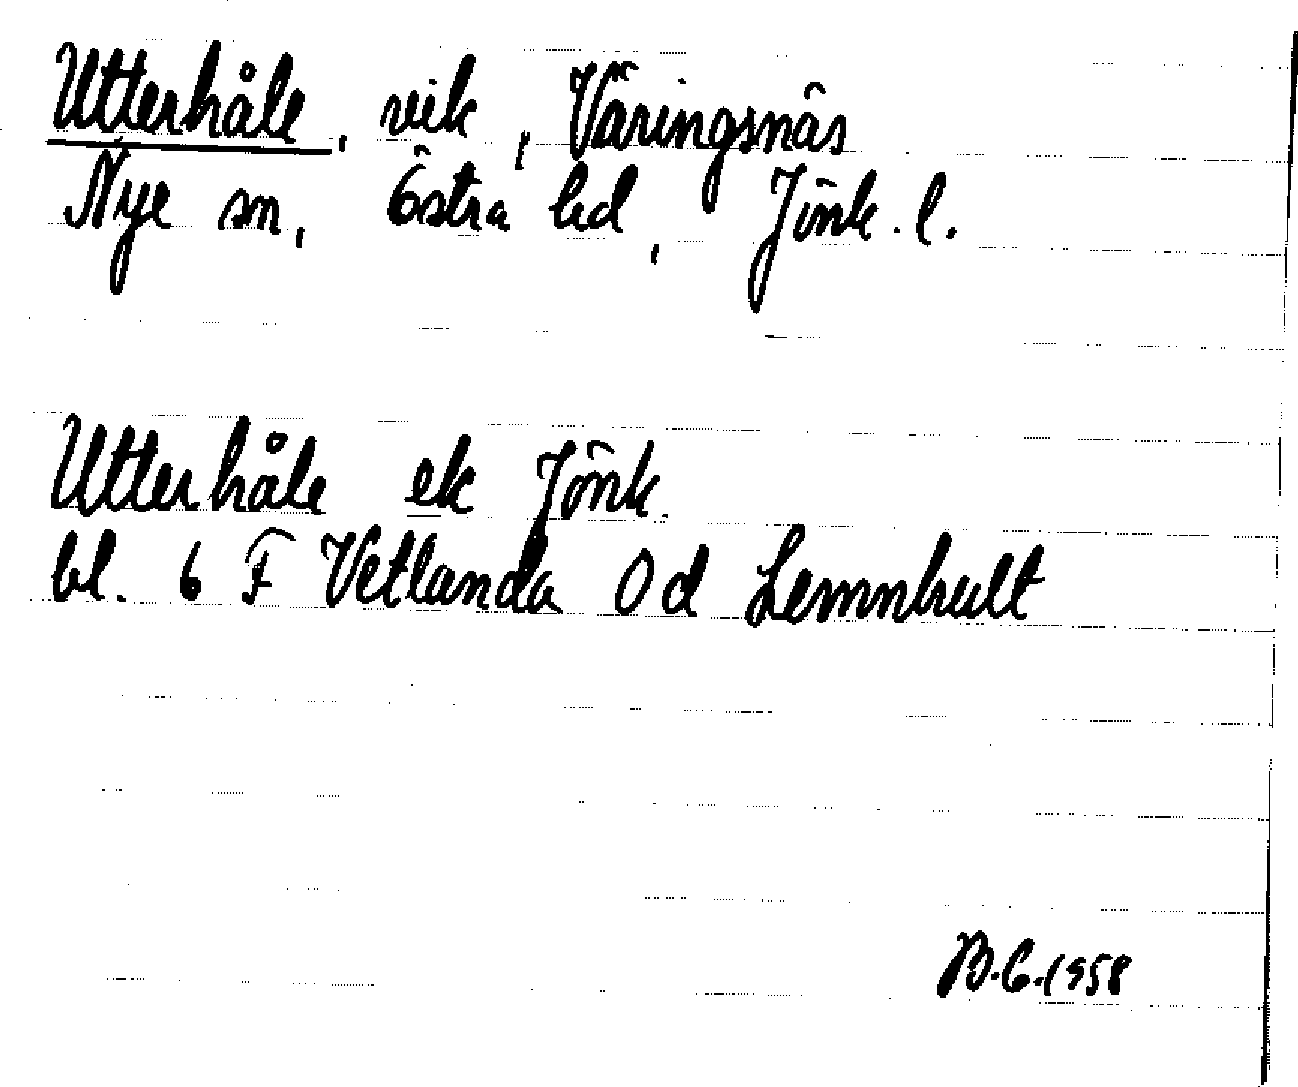 Utterhåle, vik, Väringsnäs
Nye sn, Östra hd, Jönk. l.
Utterhåle ek Jönk.
bl. 6 F Vetlanda 0d Lemnhult
B.C. 1958